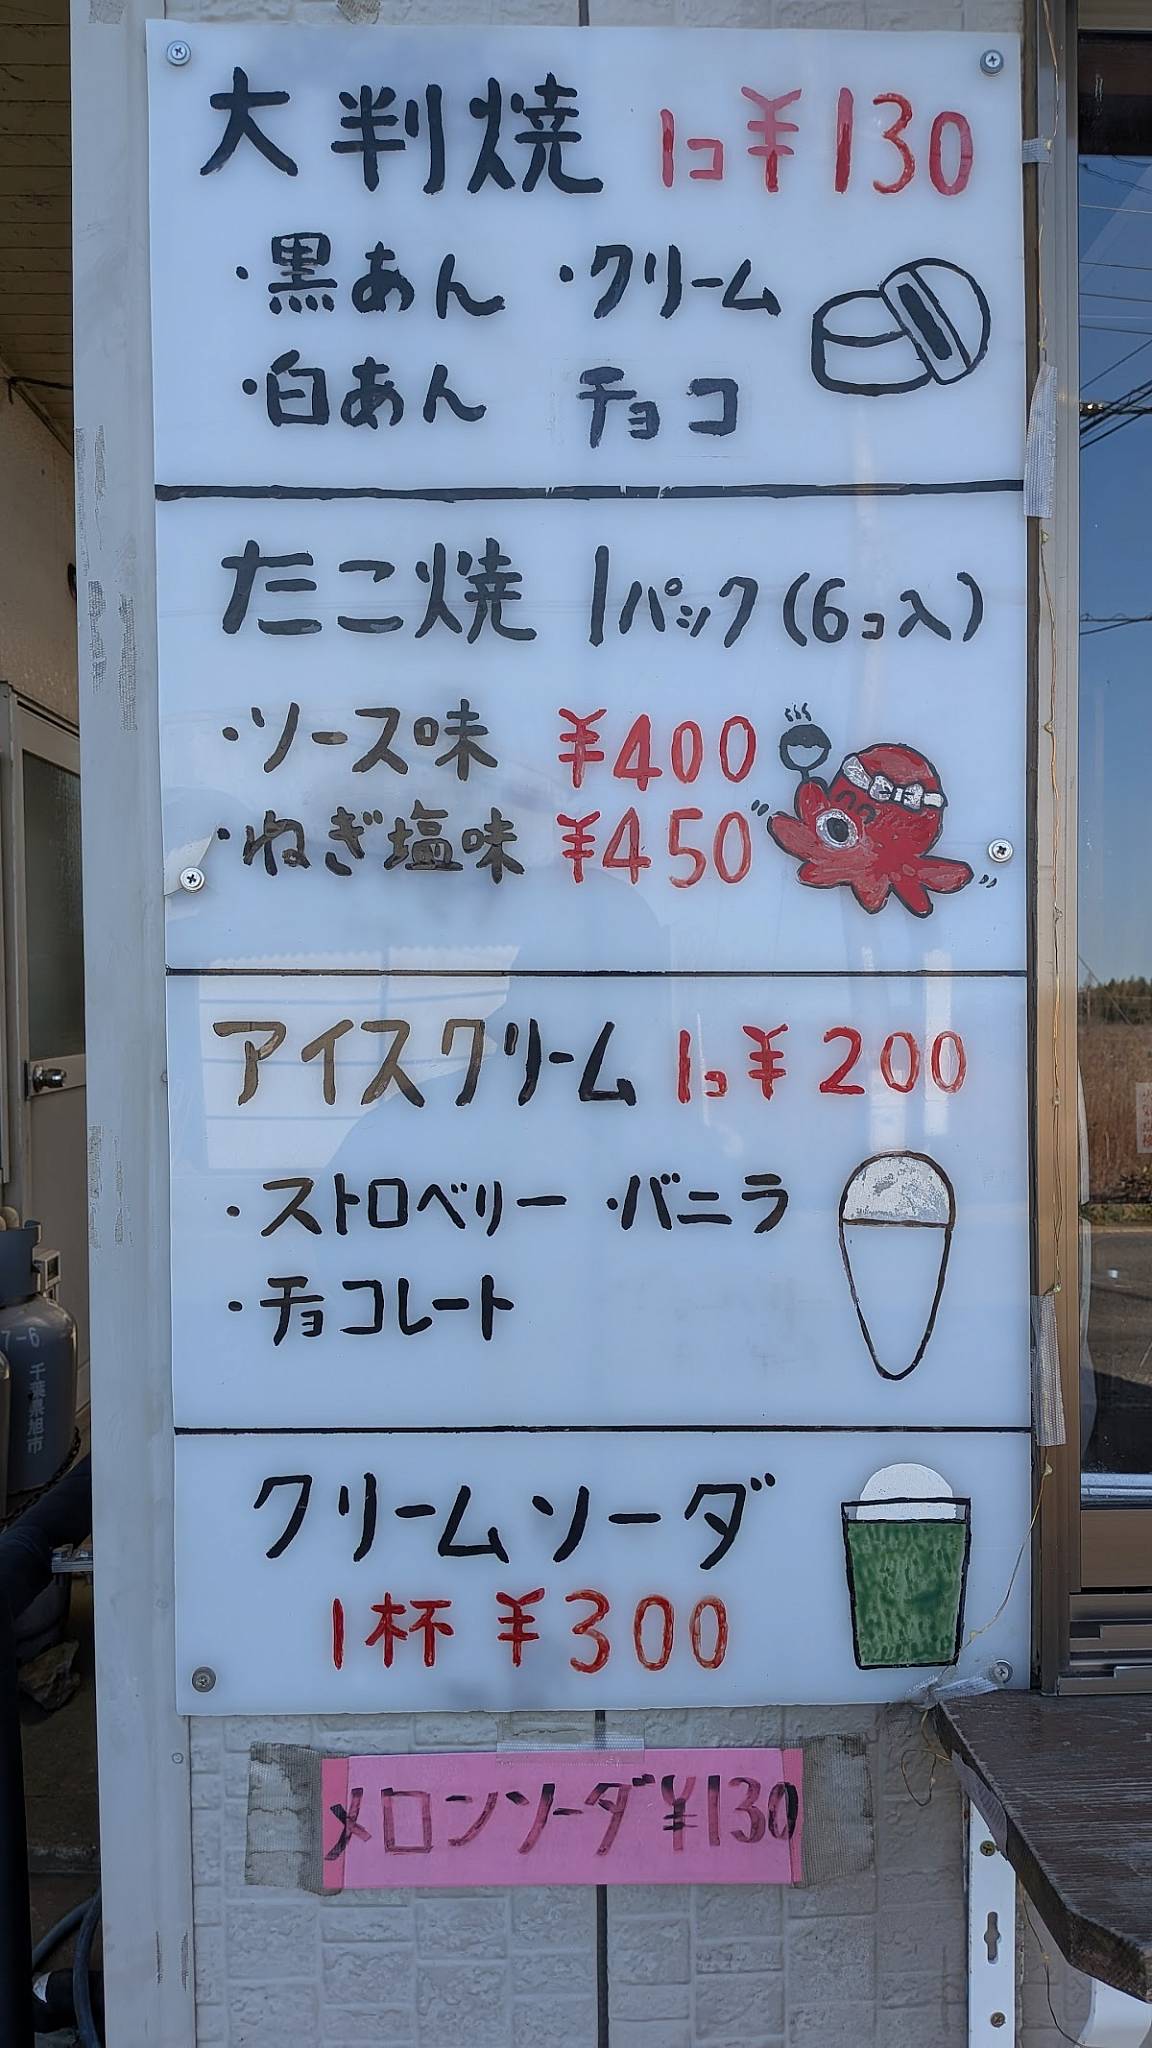 大判焼 1コ ¥130
・黒あん ・クリーム
・白あん チョコ
たこ焼 1パック(6コ入)
・ソース味 ¥400
・ねぎ塩味 ¥450
アイスクリーム 1コ ¥200
・ストロベリー ・バニラ
・チョコレート
クリームソーダ
1杯 ¥300
メロンソーダ¥130
7-6
千葉県旭市